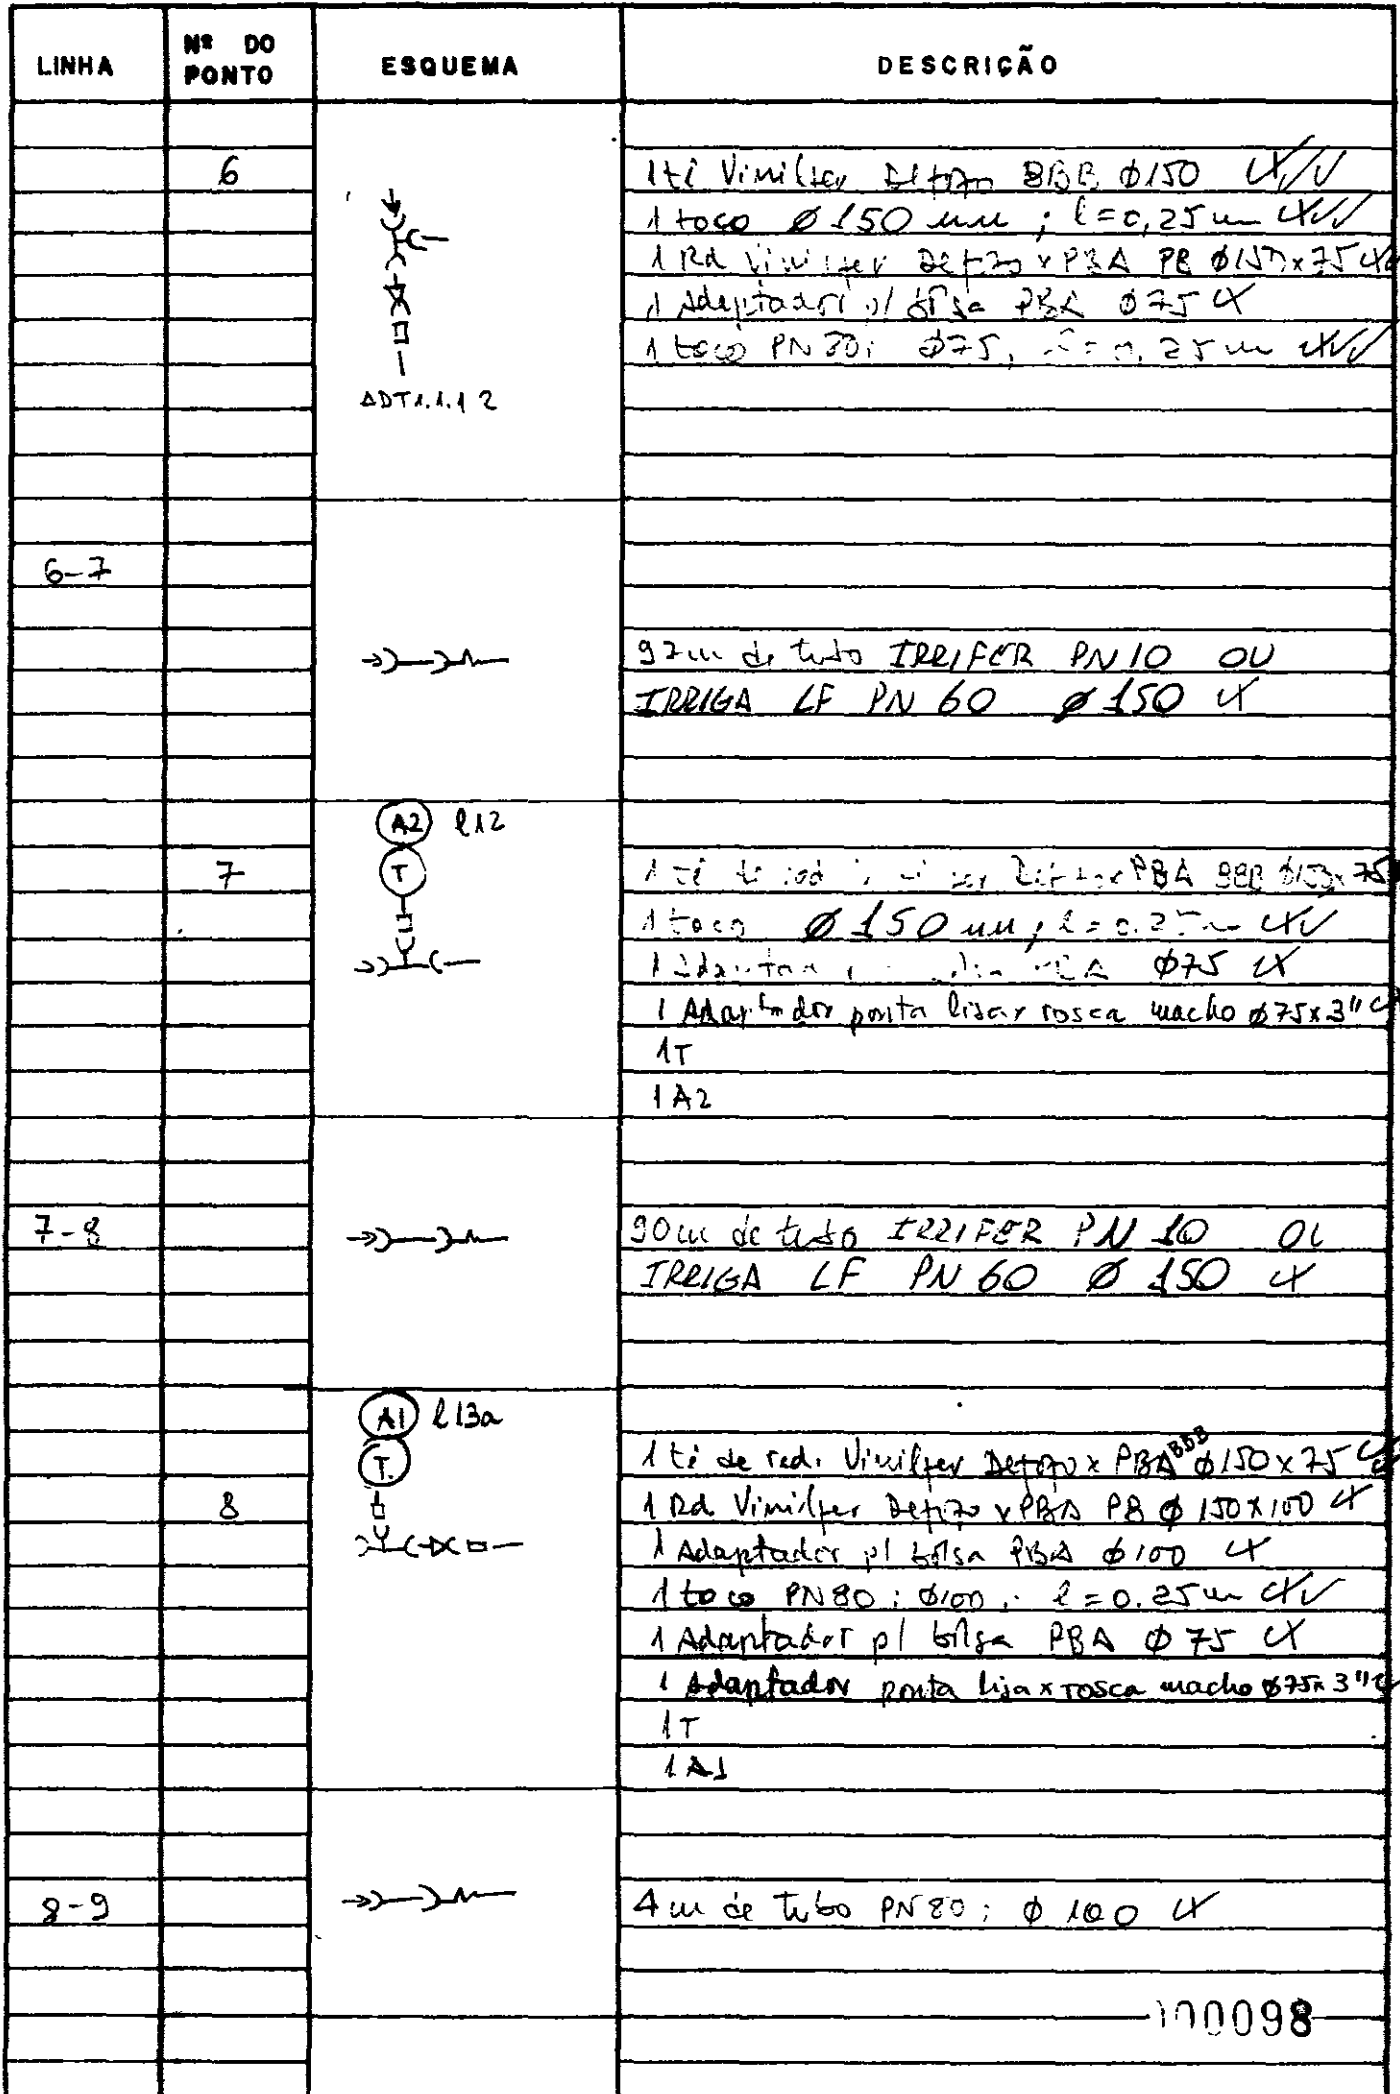 LINHA
Nº DO PONTO
ESQUEMA
DESCRIÇÃO
6
1 tê Vinilfer Defofo BBB Ø150
1 toco Ø 150 mm ; l=0,25m
1 Rd Vinilfer Defofo x PBA PB Ø150x75
1 Adaptador p/ bolsa PBA Ø75
1 toco PN80; Ø75, l=0,25m
ADT1.1.1 2
6-7
97m de tubo IRRIFER PN10 OU
IRRIGA LF PN 60 Ø 150
A2 l12
7 T
1 tê de red PBA BBB Ø150x75
1 toco Ø 150 mm; l=0.25m
1 Ø75
1 Adaptador ponta lisa x rosca macho Ø75x3"
1T
1 A2
7-8
90m de tubo IRRIFER PN 10 OU
IRRIGA LF PN 60 Ø 150
A1 l13a
T.
1 tê de red. Vinilfer Defofo x PBA BBB Ø150x75
8
1 Rd Vinilfer Defofo x PBA PB Ø 150x100
1 Adaptador p/ bolsa PBA Ø100
1 toco PN80; Ø100; l=0.25m
1 Adaptador p/ bolsa PBA Ø 75
1 Adaptador ponta lisa x rosca macho Ø75x3"
1T
1A1
8-9
4m de tubo PN80; Ø 100
000098